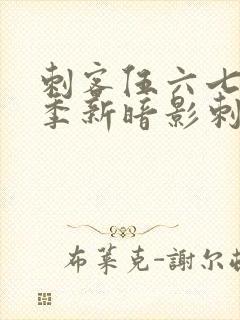 刺客伍六七
季新暗影刺
布莱克-謝尔